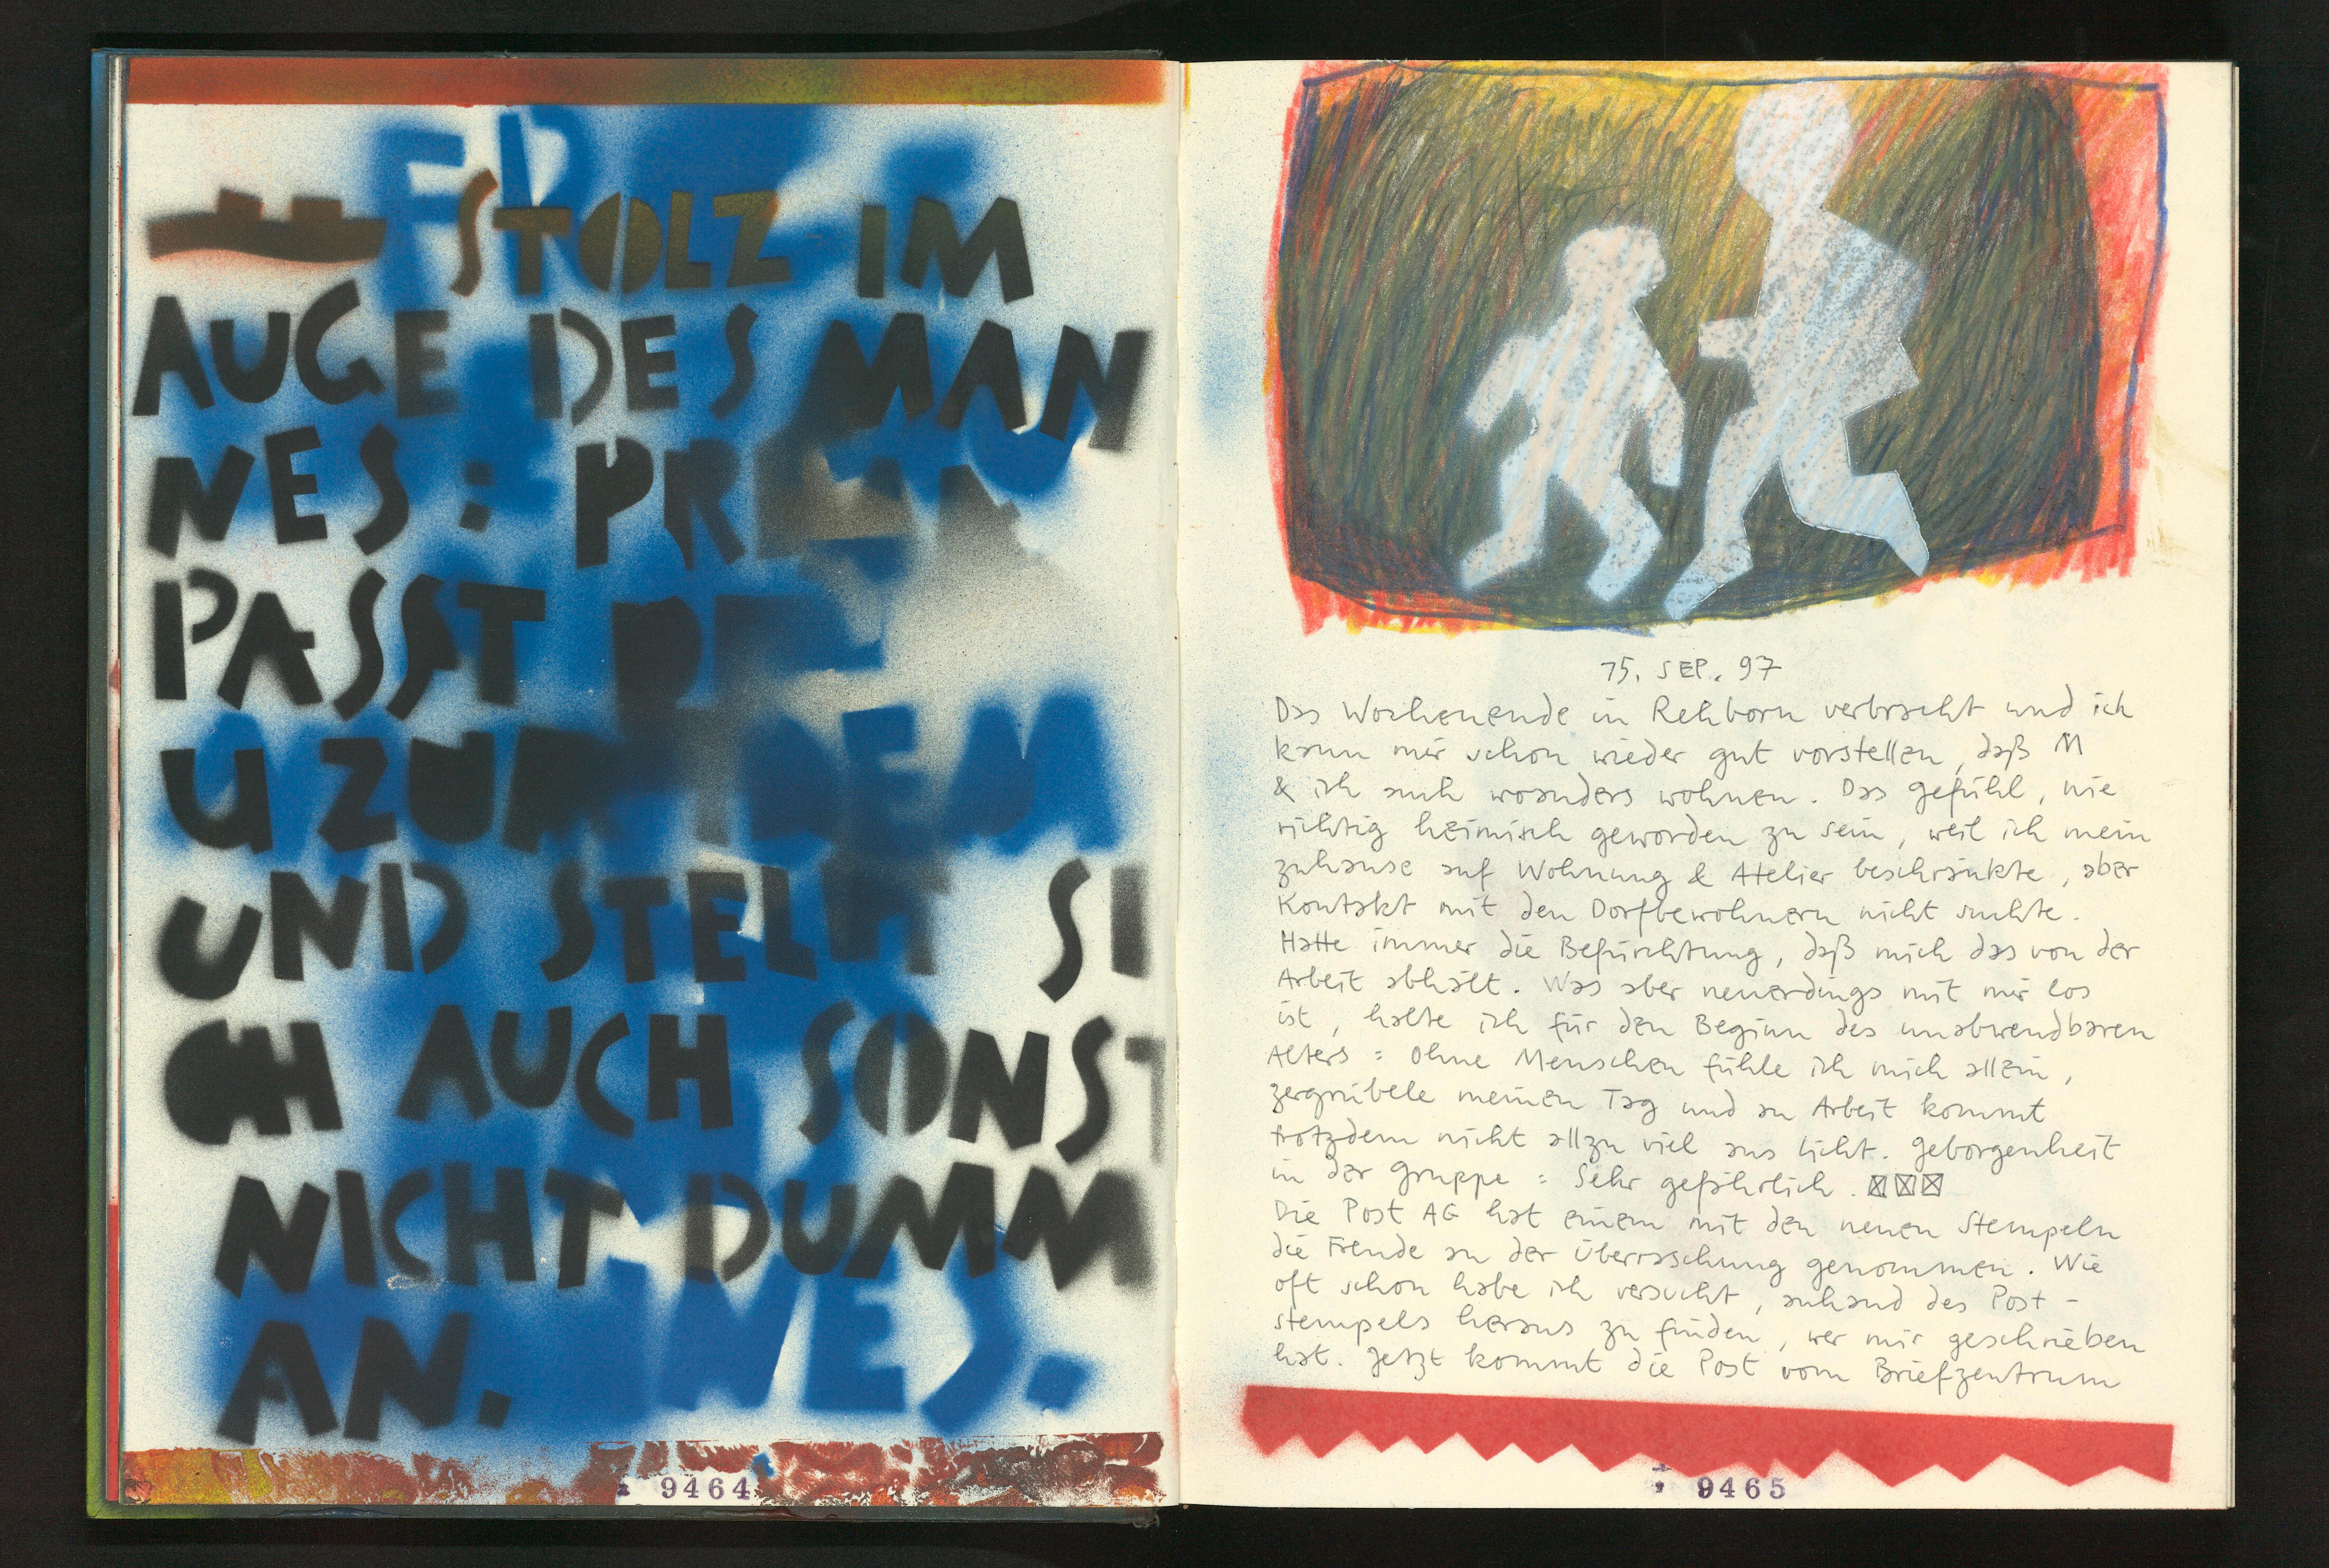 STOLZ IM
AUGE DES MAN
NES : PR
PASST
U ZUM DEM
UND STELLT SI
CH AUCH SONST
NICHT DUMM
AN. NES.
9464
15. SEP. 97
Das Wochenende in Rehborn verbracht und ich
kann mir schon wieder gut vorstellen, daß M
& ich auch woanders wohnen. Das Gefühl, nie
richtig heimisch geworden zu sein, weil ich mein
zuhause auf Wohnung & Atelier beschränkte, aber
Kontakt mit den Dorfbewohnern nicht suchte.
Hatte immer die Befürchtung, daß mich das von der
Arbeit abhält. Was aber neuerdings mit mir los
ist, halte ich für den Beginn des unabwendbaren
Alters : Ohne Menschen fühle ich mich allein,
zergrübele meinen Tag und an Arbeit kommt
trotzdem nicht allzu viel ans Licht. Geborgenheit
in der Gruppe : Sehr gefährlich.
Die Post AG hat einem mit den neuen Stempeln
die Freude an der Überraschung genommen. Wie
oft schon habe ich versucht, anhand des Post-
stempels heraus zu finden, wer mir geschrieben
hat. Jetzt kommt die Post vom Briefzentrum
9465